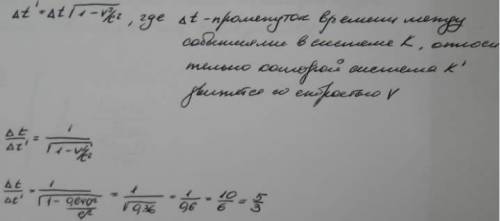 Δt' = Δt √(1 - v²/c²), где Δt - промежуток времени между
событиями в системе K, относи
тельно которой система K'
движется со скоростью V
Δt/Δt' = 1/√(1 - v²/c²)
Δt/Δt' = 1/√(1 - 0,64c²/c²) = 1/√0,36 = 1/0,6 = 10/6 = 5/3